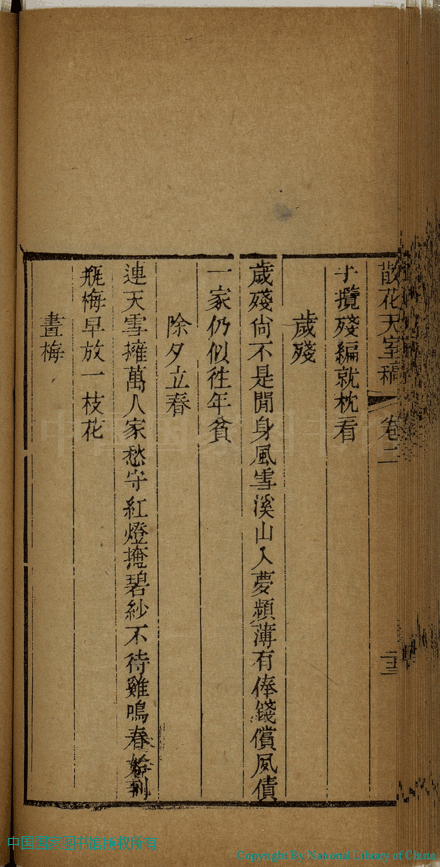 散花天室稿 卷二
手攬殘編就枕看
歲殘
歲殘尙不是閒身風雪溪山入夢頻薄有俸錢償夙債
一家仍似徃年貧
除夕立春
連天雪擁萬人家愁守紅燈掩碧紗不待雞鳴春始到
甁梅早放一枝花
畫梅
Copyright By National Library of China